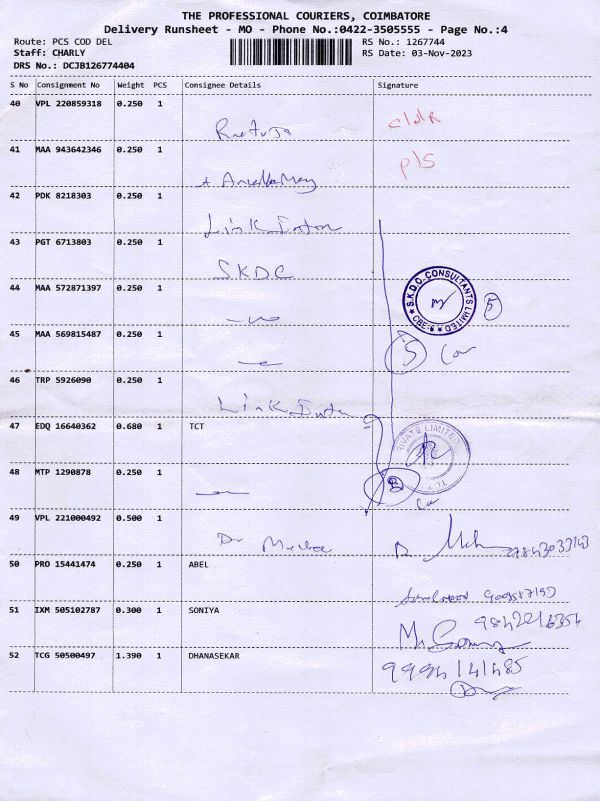 THE PROFESSIONAL COURIERS, COIMBATORE
Delivery Runsheet - MO - Phone No.:0422-3505555 - Page No.:4
Route: PCS COD DEL
Staff: CHARLY
DRS No.: DCJB126774404
RS No.: 1267744
RS Date: 03-Nov-2023
S No Consignment No Weight PCS Consignee Details Signature
40 VPL 220859318 0.250 1
41 MAA 943642346 0.250 1
pls
42 PDK 8218303 0.250 1
Link
43 PGT 6713803 0.250 1
SKDC
44 MAA 572871397 0.250 1
S.K.D.C. CONSULTANTS LIMITED
CBE-6
5
45 MAA 569815487 0.250 1
5
46 TRP 5926090 0.250 1
Link
47 EDQ 16640362 0.680 1 TCT
48 MTP 1290878 0.250 1
49 VPL 221000492 0.500 1
Dr
50 PRO 15441474 0.250 1 ABEL
51 IXM 505102787 0.300 1 SONIYA
52 TCG 50500497 1.390 1 DHANASEKAR
9994141485